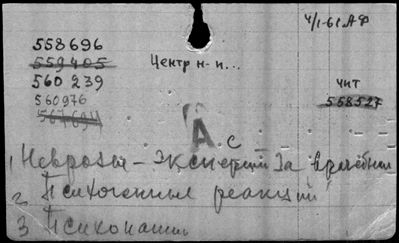 4/1-61 АФ
558696
559405
560 239
560976
567694
Центр н-и...
чит
558527
А. с
1, Неврозы - Эксперций За врачебной
2 Психогенные реакций
3 Психопатии